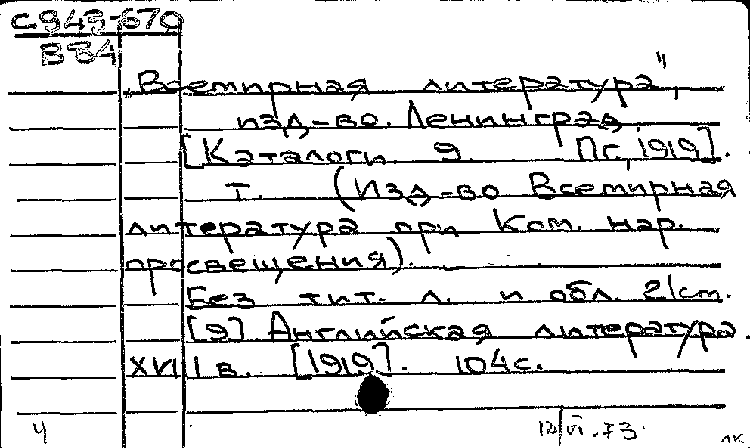 С949-670
В84
„Всемирная литература",
изд-во. Ленинград
[Каталоги. 9. Пг, 1919].
т. (Изд-во Всемирная
литература при Ком. нар.
просвещения).
Без тит. л. и обл. 21 cm.
[9] Английская литература
XVIII в. [1919]. 104 с.
4
VI.73.